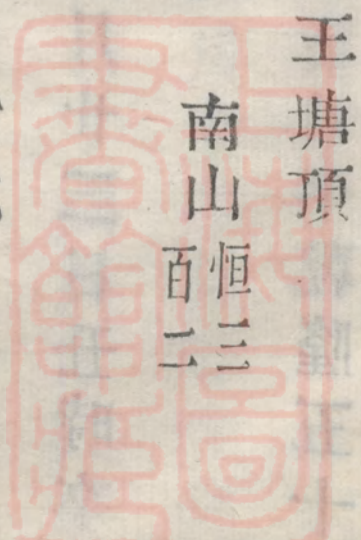 王塘頂
南山恒三
百二